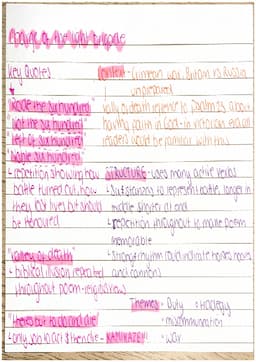 Charge of the Light Brigade
Key Quotes
Context - Crimean war. Britain vs Russia
unprepared
"Rode the six hundred"
"Not the six hundred"
"Left of six hundred"
"Noble six hundred"
valley of death reference to Psalm 23 about
having faith in God - in victorian era all
readers would be familiar with this
↳ repetition showing how
battle turned out, how
they lost lives but should
be honoured
STRUCTURE - uses many active verbs
↳ 6 stanzas to represent battle, longer in
middle shorter at end
↳ repetition throughout to make poem
memorable
↳ strong rhythm could imitate horses hooves
and cannons
"valley of death"
↳ biblical illusion repeated
throughout poem - religious views
Themes - Duty
• miscommunication
• war
"theirs but to do and die"
↳ only job to act & then die - KAMIKAZE!!